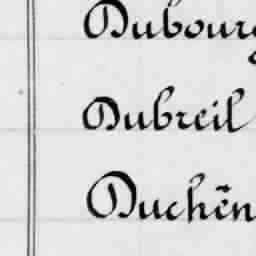 Dubourg
Dubreil
Duchên